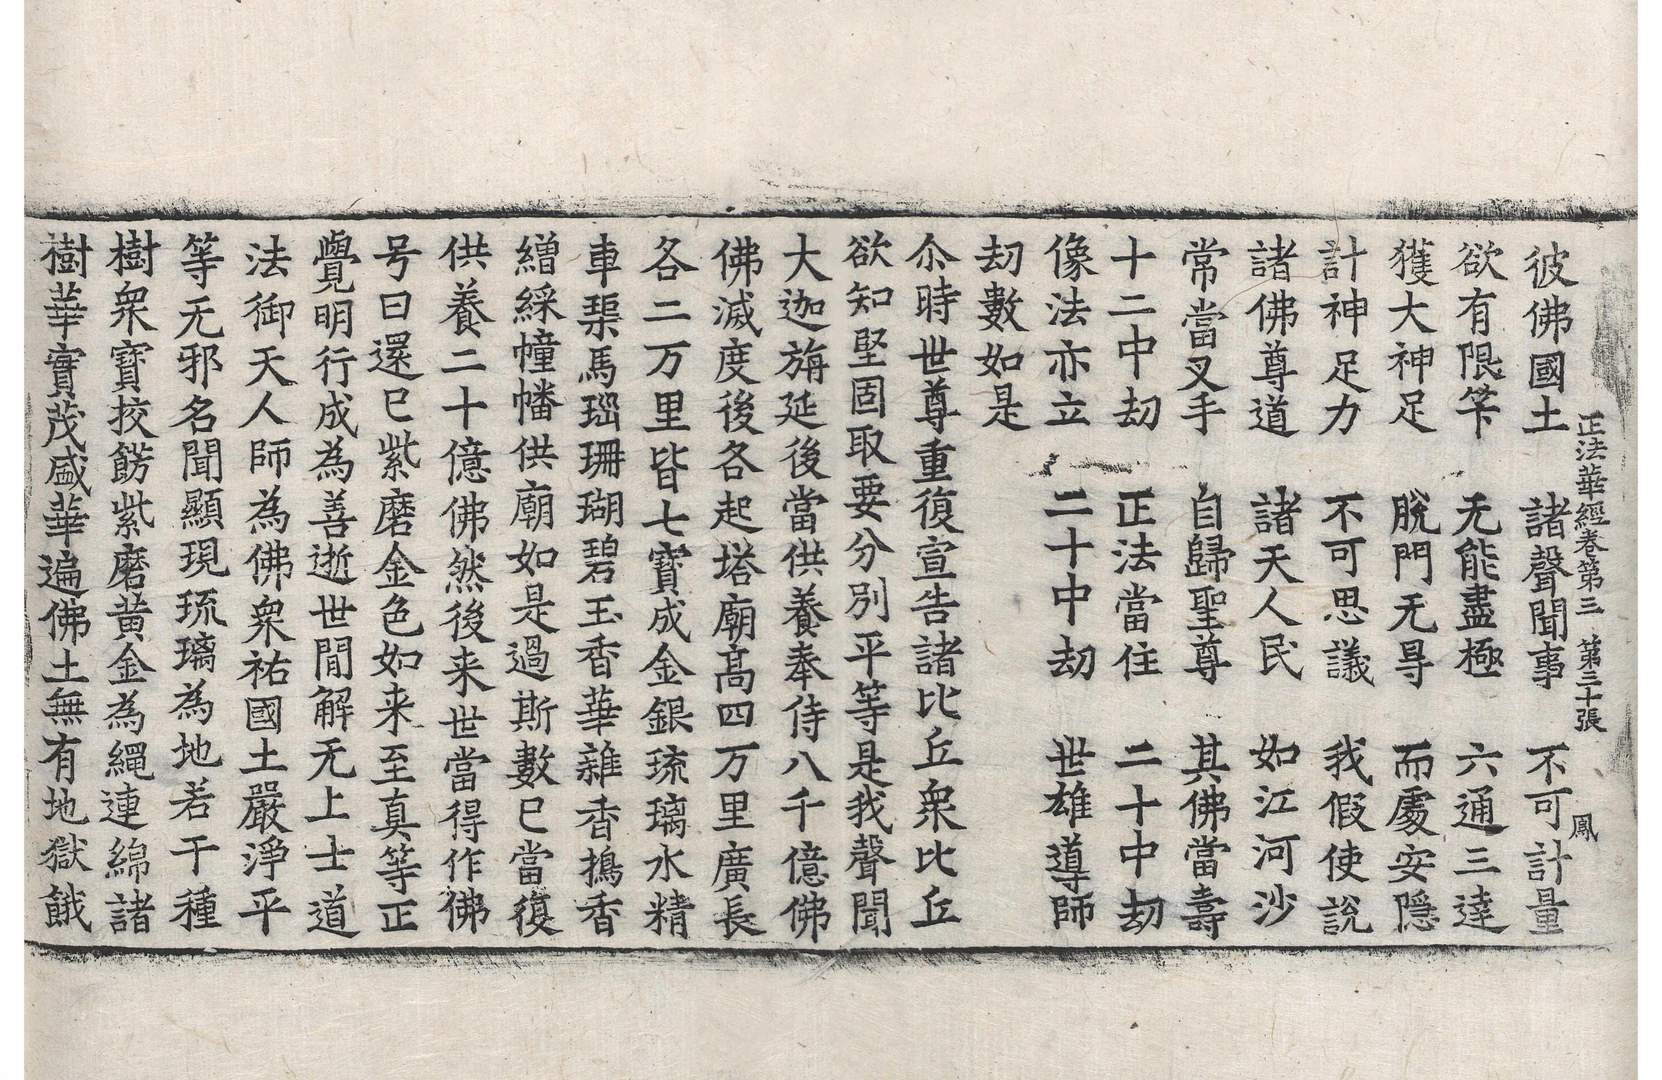 正法華經卷第三　第三十張　鳳
彼佛國土　諸聲聞事　不可計量
欲有限筭　无能盡極　六通三達
獲大神足　脫門无㝵　而處安隱
計神足力　不可思議　我假使說
諸佛尊道　諸天人民　如江河沙
常當叉手　自歸聖尊　其佛當壽
十二中劫　正法當住　二十中劫
像法亦立　二十中劫　世雄導師
劫數如是
尒時世尊重復宣告諸比丘衆比丘
欲知堅固取要分別平等是我聲聞
大迦旃延後當供養奉侍八千億佛
佛滅度後各起塔廟高四万里廣長
各二万里皆七寶成金銀琉璃水精
車璖馬瑙珊瑚碧玉香華雜香擣香
繒綵幢幡供廟如是過斯數已當復
供養二十億佛然後来世當得作佛
号曰還已紫磨金色如来至真等正
覺明行成為善逝世間解无上士道
法御天人師為佛衆祐國土嚴淨平
等无邪名聞顯現琉璃為地若干種
樹衆寶挍餝紫磨黃金為繩連綿諸
樹華實茂盛華遍佛土無有地獄餓